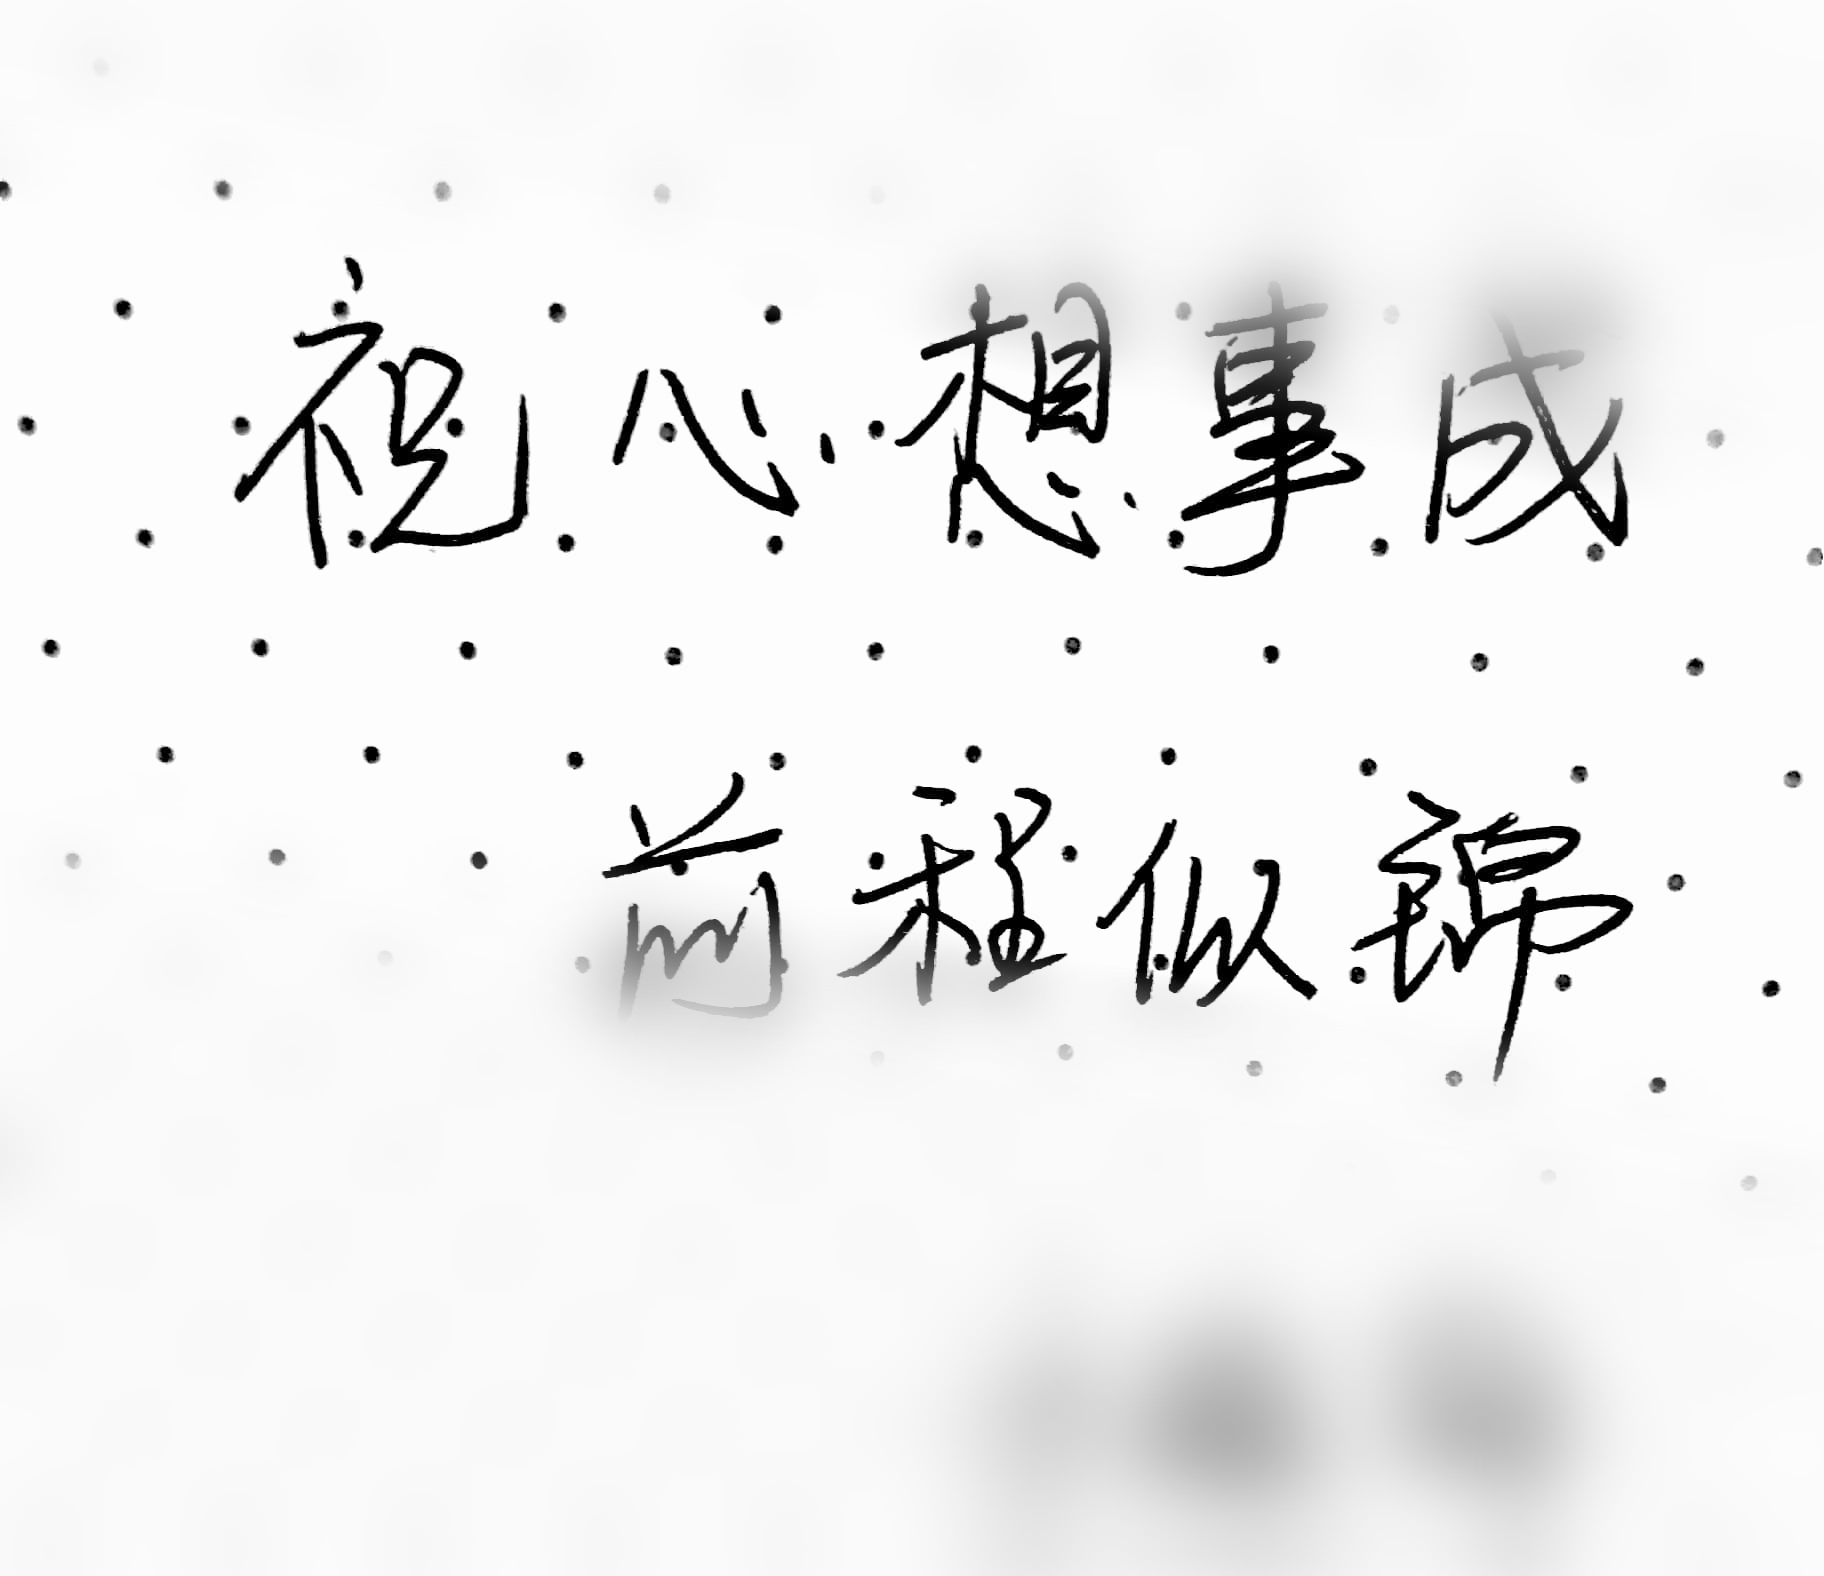 祝心想事成
前程似锦